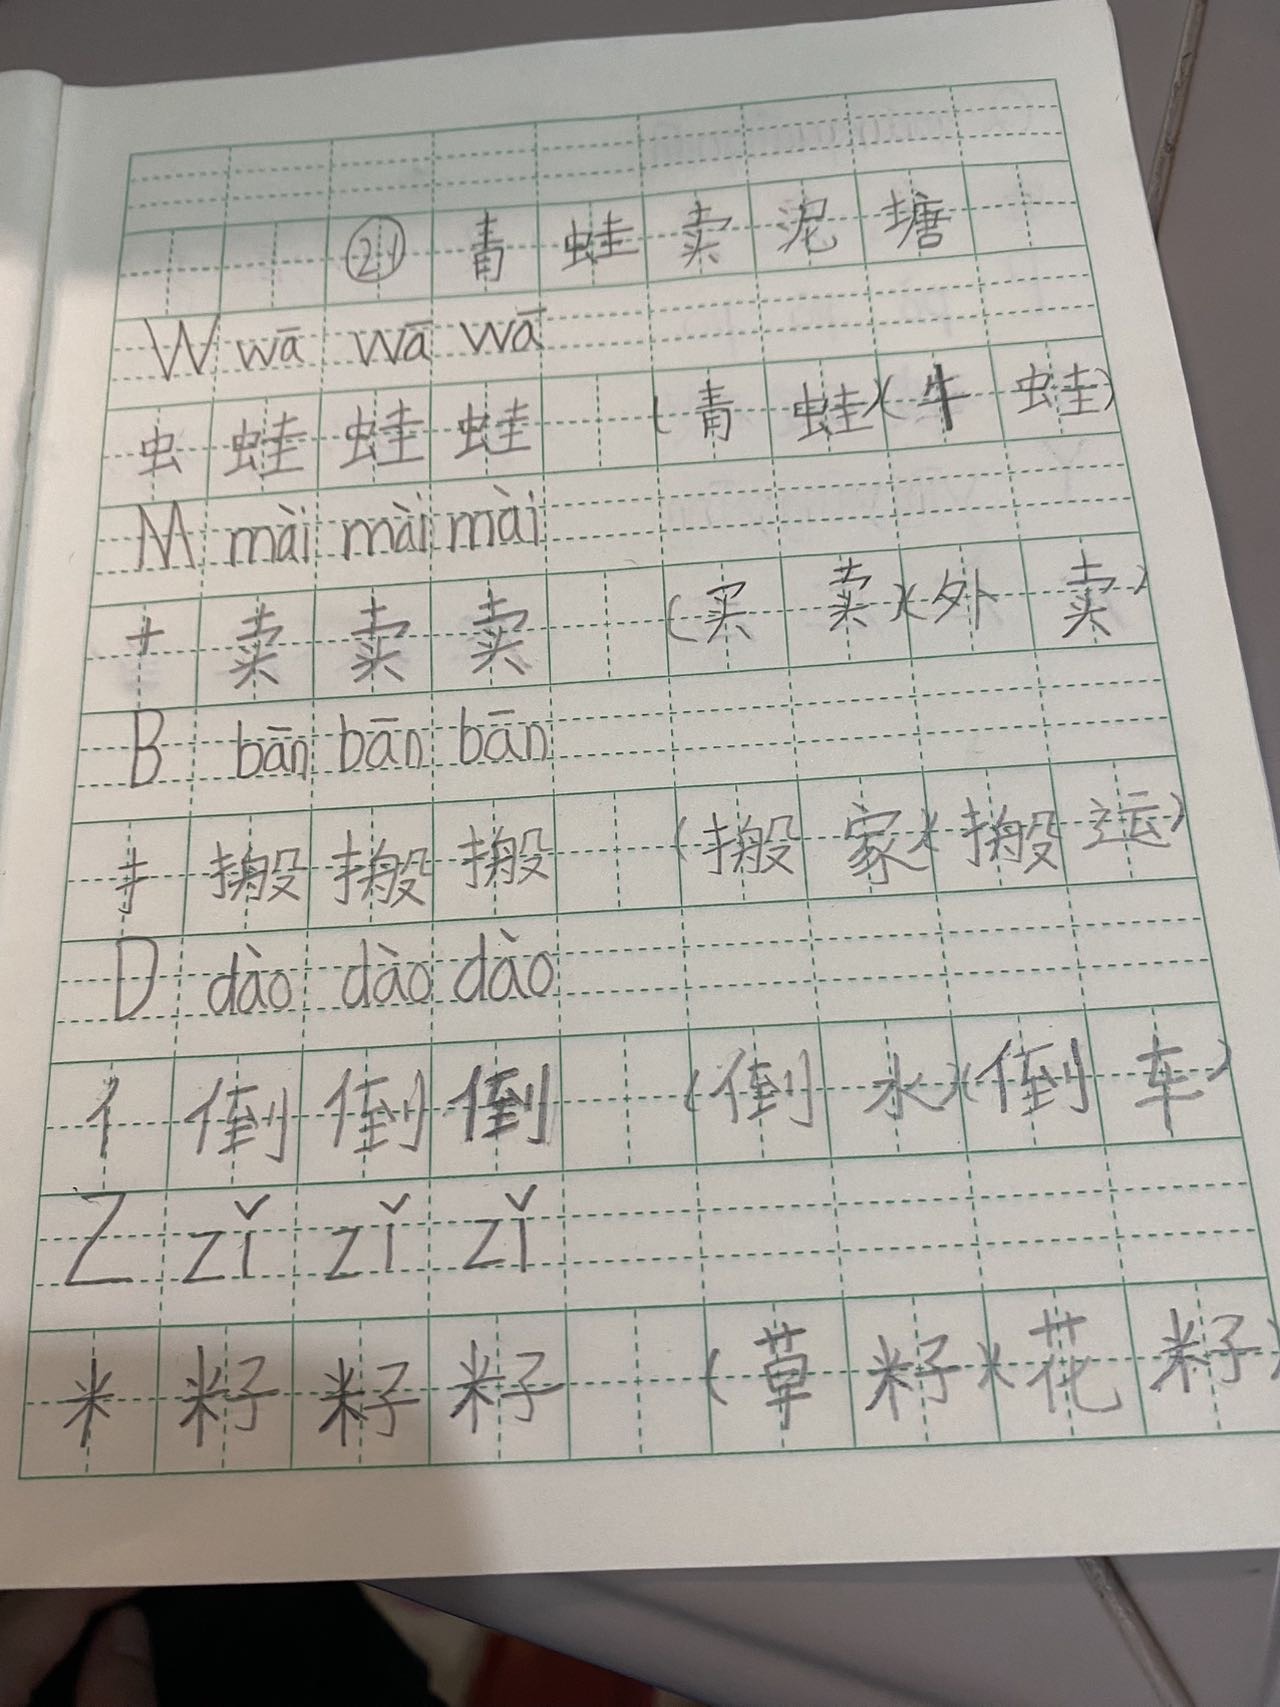 21 青蛙卖泥塘
W wā wā wā
虫 蛙 蛙 蛙 (青蛙)(牛蛙)
M mài mài mài
十 卖 卖 卖 (买卖)(外卖)
B bān bān bān
扌 搬 搬 搬 (搬家)(搬运)
D dào dào dào
亻 倒 倒 倒 (倒水)(倒车)
Z zǐ zǐ zǐ
米 籽 籽 籽 (草籽)(花籽)